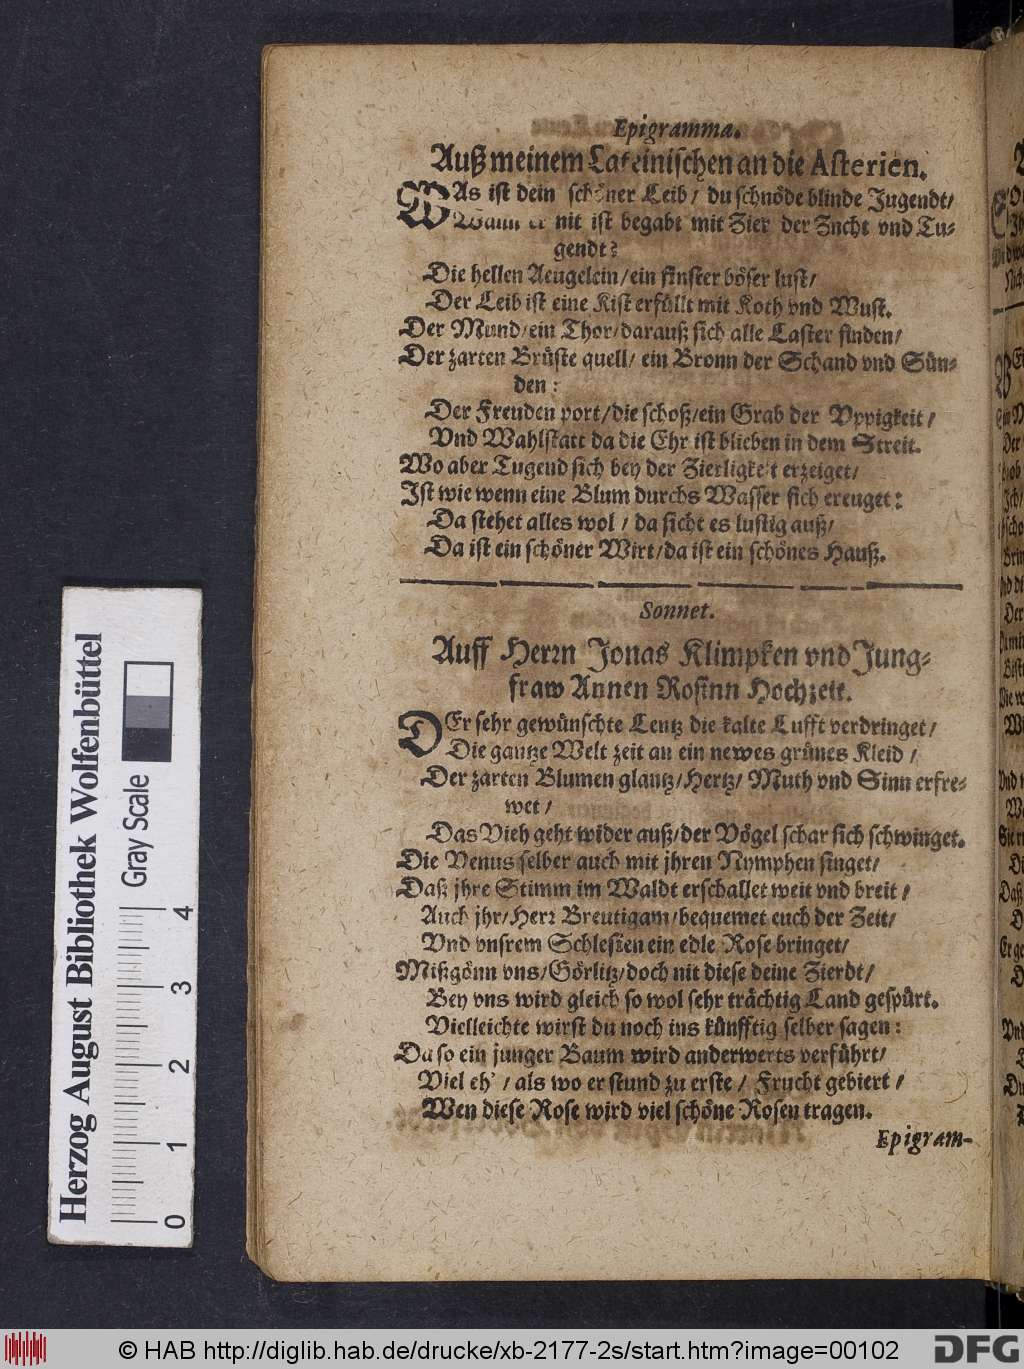 Epigramma.
Auß meinem Lateinischen an die Asterien.
WAs ist dein schöner Leib / du schnöde blinde Jugendt /
Wann er nit ist begabt mit Zier der Zucht vnd Tu-
gendt?
Die hellen Aeugelein / ein finster böser lust /
Der Leib ist eine Kist erfüllt mit Koth vnd Wust.
Der Mund / ein Thor / darauß sich alle Laster finden /
Der zarten Brüste quell / ein Bronn der Schand vnd Sün-
den:
Der Freuden port / die schoß / ein Grab der Vppigkeit /
Vnd Wahlstatt da die Ehr ist blieben in dem Streit.
Wo aber Tugend sich bey der Zierligkeit erzeiget /
Ist wie wenn eine Blum durchs Wasser sich ereuget:
Da stehet alles wol / da sicht es lustig auß /
Da ist ein schöner Wirt / da ist ein schönes Hauß.
Sonnet.
Auff Herrn Jonas Klimpken vnd Jung-
fraw Annen Rosinn Hochzeit.
DEr sehr gewünschte Lentz die kalte Lufft verdringet /
Die gantze Welt zeit an ein newes grünes Kleid /
Der zarten Blumen glantz / Hertz / Muth vnd Sinn erfre-
wet /
Das Vieh geht wider auß / der Vögel schar sich schwinget.
Die Venus selber auch mit jhren Nymphen singet /
Daß jhre Stimm im Waldt erschallet weit vnd breit /
Auch jhr / Herr Breutigam / bequemet euch der Zeit /
Vnd vnsrem Schlesien ein edle Rose bringet /
Mißgönn vns / Görlitz / doch nit diese deine Zierdt /
Bey vns wird gleich so wol sehr trächtig Land gespürt.
Vielleichte wirst du noch ins künfftig selber sagen:
Da so ein junger Baum wird anderwerts verführt /
Viel eh' / als wo er stund zu erste / Frucht gebiert /
Wen diese Rose wird viel schöne Rosen tragen.
Epigram-
Herzog August Bibliothek Wolfenbüttel
Gray Scale
0 1 2 3 4
© HAB http://diglib.hab.de/drucke/xb-2177-2s/start.htm?image=00102
DFG